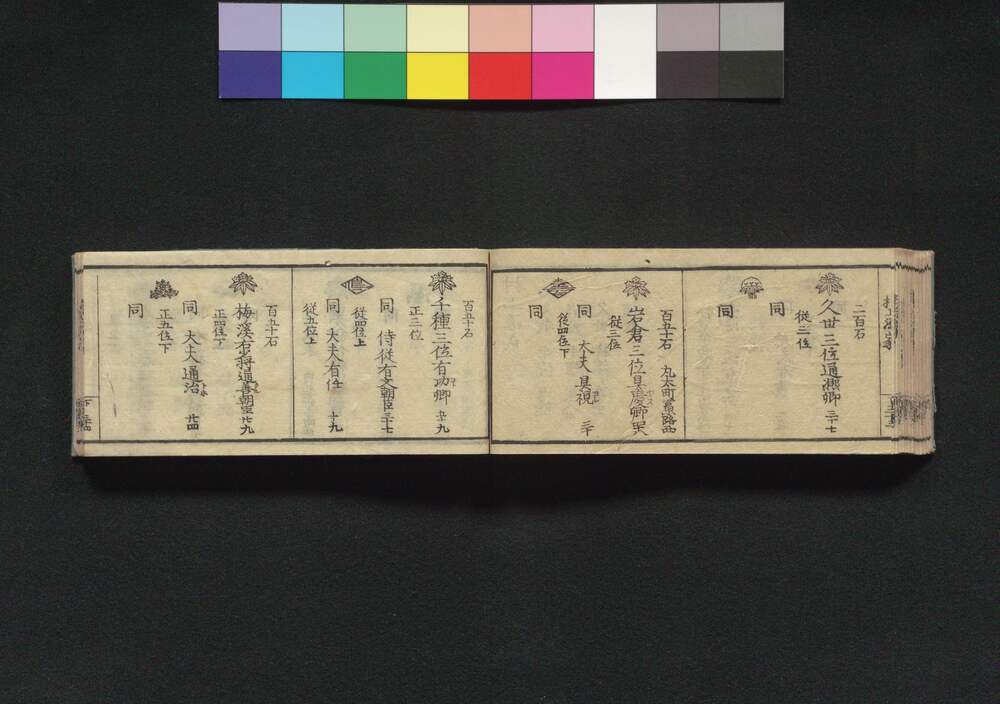 二百石
久世三位通煕卿 三十七
従三位
同
同
百五十石 丸太町
岩倉三位具慶卿
従三位
同 大夫具視 三十
従四位下
同
百五十石
千種三位有功卿 五十九
正三位
同 侍従有文朝臣 三十七
従四位上
同 大夫有任 十九
従五位上
百五十石
梅溪右少将通善朝臣 廿九
正四位下
同 大夫通治 廿四
正五位下
同